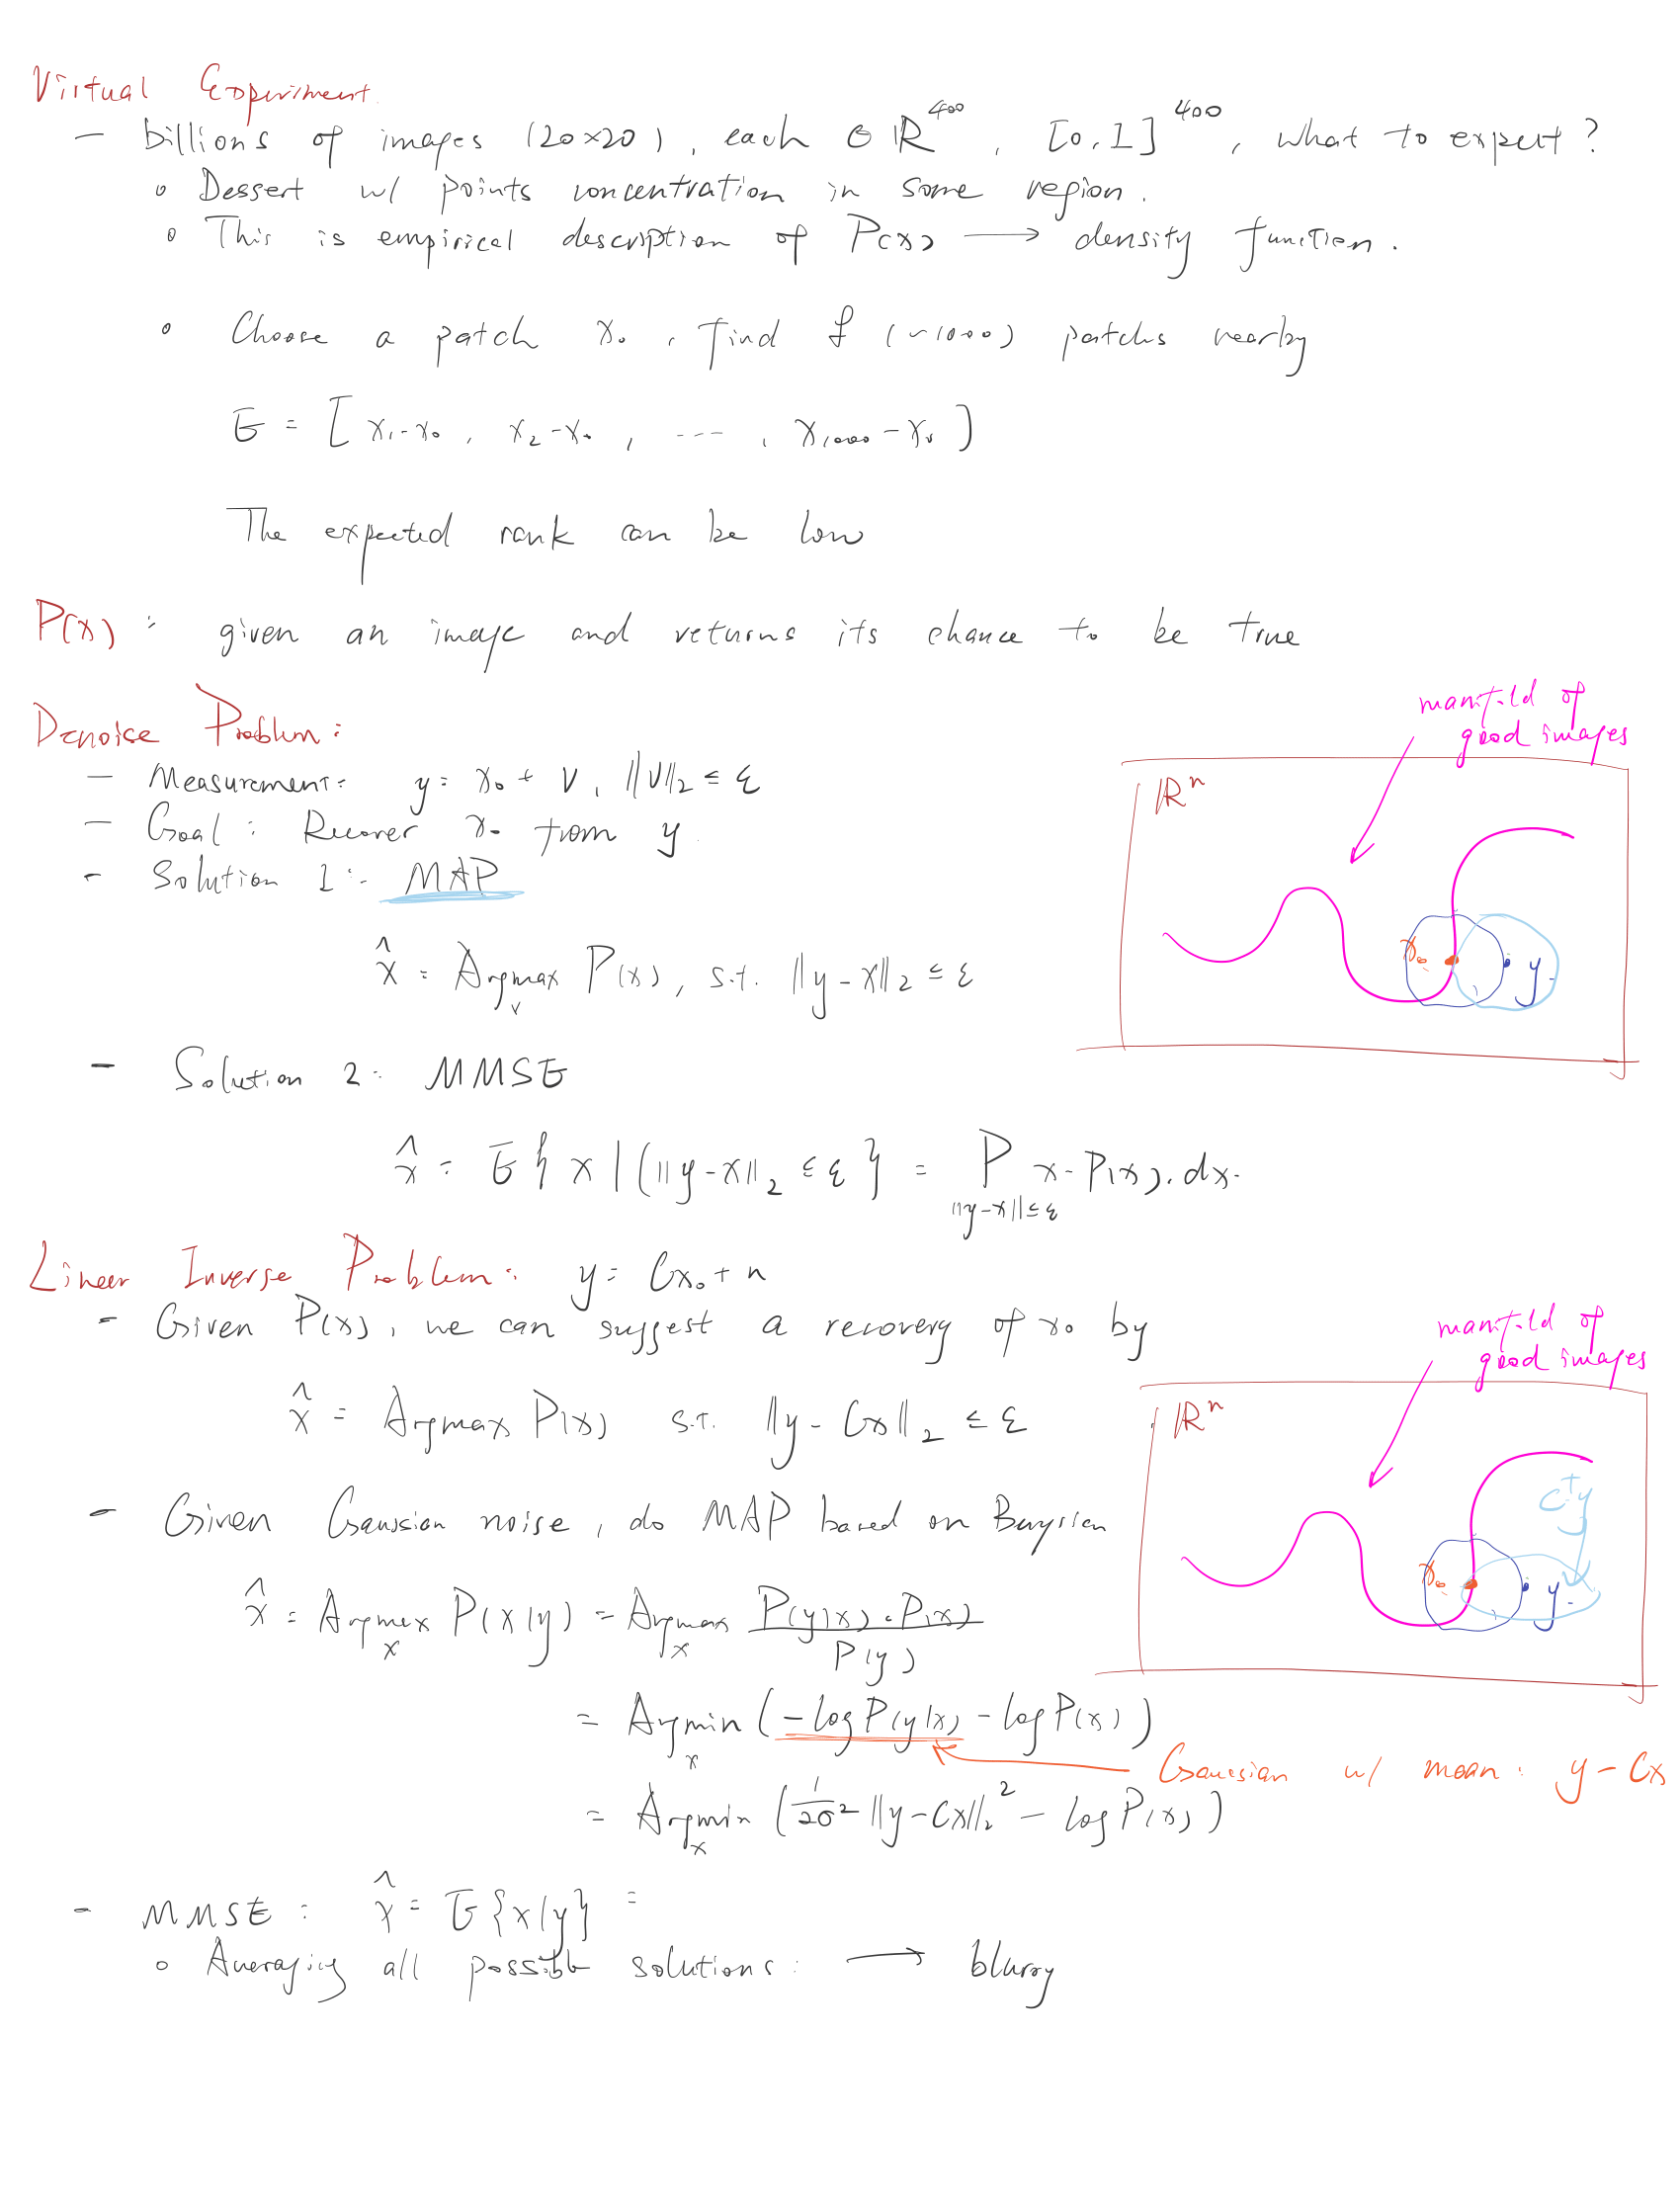 Virtual Experiment.
- billions of images (20×20), each ∈ ℝ^400, [0,1]^400, what to expect?
o Dessert w/ points concentration in some region.
o This is empirical description of P(x) → density function.
o Choose a patch x₀, find (~1000) patchs nearby
E = [x₁-x₀, x₂-x₀, ---, x₁₀₀₀-x₀]
The expected rank can be low
P(x): given an image and returns its chance to be true
Denoise Problem:
- Measurement: y = x₀ + v, ‖v‖₂ ≤ ε
- Goal: Recover x₀ from y.
- Solution 1: MAP
x̂ = Argmax_x P(x), s.t. ‖y-x‖₂ ≤ ε
manifold of
good images
ℝⁿ
x₀
y
- Solution 2: MMSE
x̂ = E{x|(‖y-x‖₂ ≤ ε} = P_{‖y-x‖≤ε} x·P(x).dx.
Linear Inverse Problem: y = Cx₀ + n
- Given P(x), we can suggest a recovery of x₀ by
x̂ = Argmax P(x) s.t. ‖y-Cx‖₂ ≤ ε
manifold of
good images
ℝⁿ
C⁺y
x₀
y
- Given Gaussian noise, do MAP based on Baysian
x̂ = Argmax_x P(x|y) = Argmax_x P(y|x)·P(x) / P(y)
= Argmin_x (-log P(y|x) - log P(x))
Gaussian w/ mean: y-Cx
= Argmin_x (1/2σ² ‖y-Cx‖₂² - log P(x))
- MMSE: x̂ = E{x|y} =
o Averaging all possible solutions: → blurry